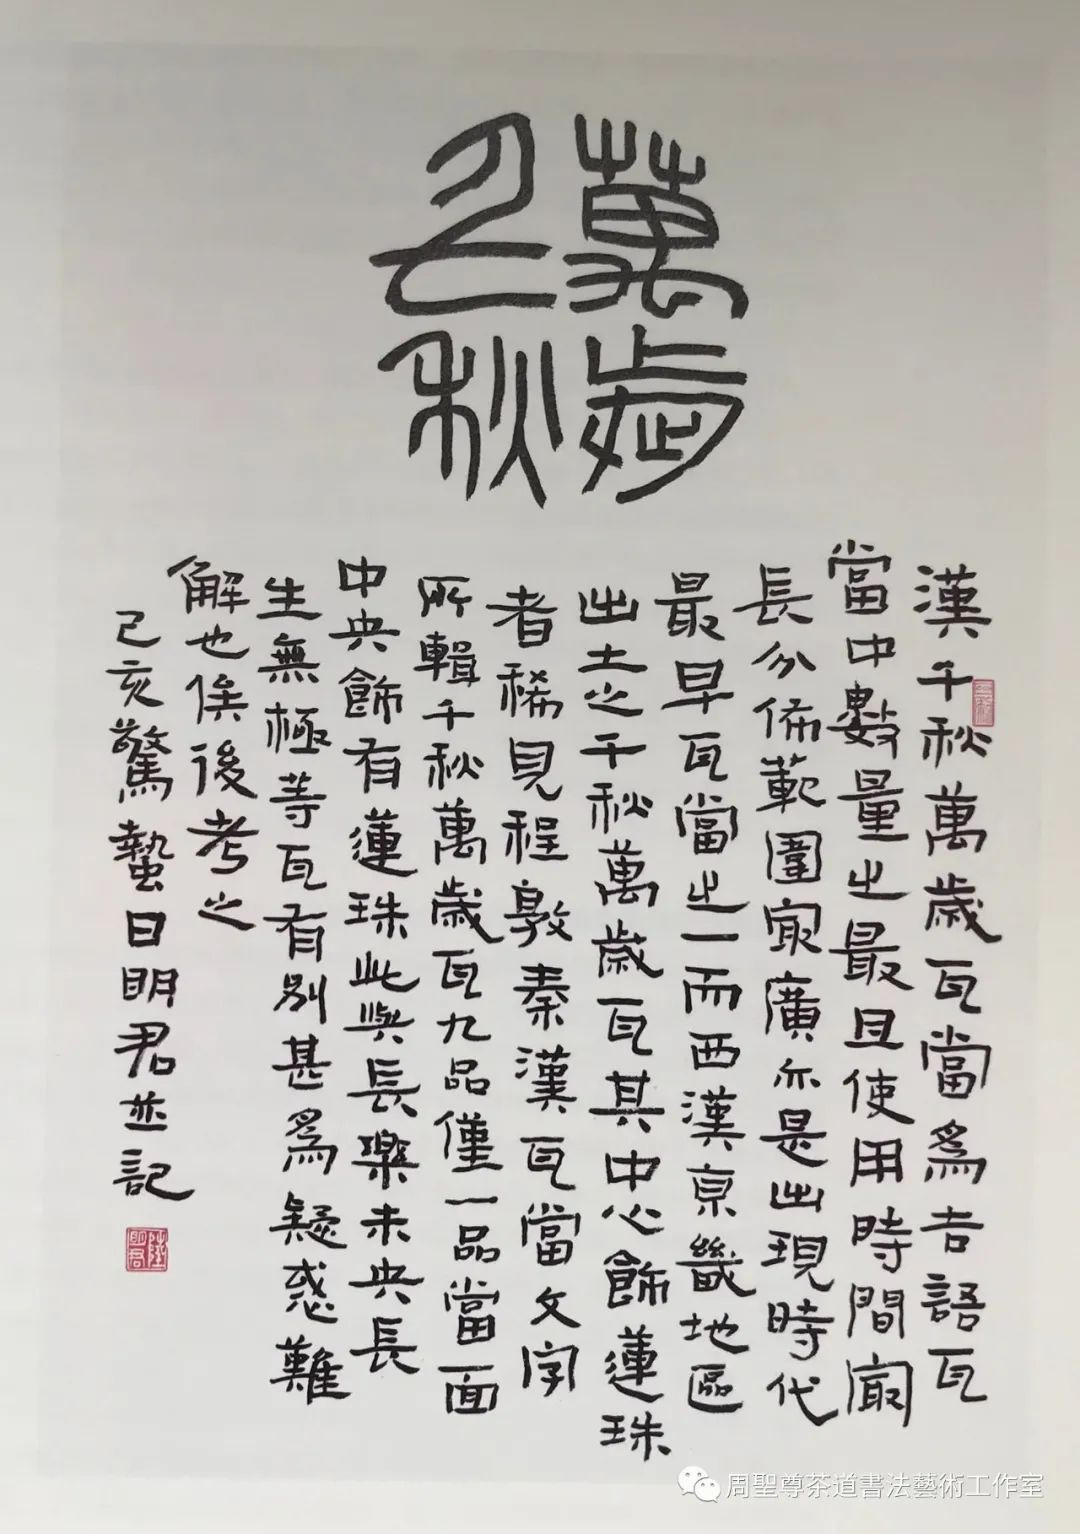 萬歲
千秋
漢千秋萬歲瓦當爲吉語瓦
當中數量之最且使用時間㝡
長分佈範圍㝡廣亦是出現時代
最早瓦當之一而西漢京畿地區
出土之千秋萬歲瓦其中心飾蓮珠
者稀見程敦秦漢瓦當文字
所輯千秋萬歲瓦九品僅一品當面
中央飾有蓮珠此與長樂未央長
生無極等瓦有別甚爲疑惑難
解也俟後考之
己亥驚蟄日明君並記
陸明君
周聖尊茶道書法藝術工作室